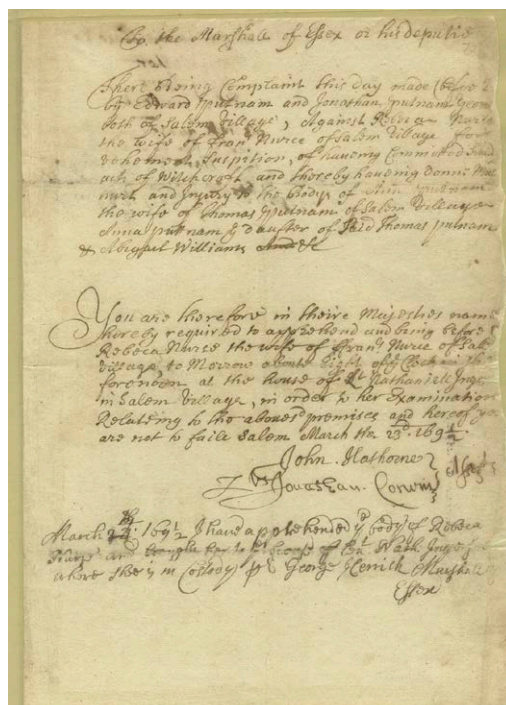 To the Marshall of Essex or his deputie
There Being Complaint this day made (before
by Edward putnam and Jonathan putnam Yeom
both of Salem Village, Against Rebeca Nurce
the wife of fran's Nurce of Salem Village for
vehement Suspition, of haveing Committed Sund
acts of Witchcraft and thereby haveing donne Mu
hurt and Injury to the Bodys of putnam
the wife of Thomas putnam of Salem Village
Anna puttnam y daufter of Said Thomas putnam
& Abigail Williams &c
You are therefore in theire Majesties nam
hereby required to apprehend and bring before
Rebeca Nurce the wife of ffran's Nurce of Sale
Village, to Morrow aboute Eight of y Clock in the
forenoon at the house of Lt Nathaniell Inge
in Salem Village, in order to her Examination
Relateing to the aboves'd premises and hereof yo
are not to faile Salem March the 23'd 169½
John Hathorne
Jonathan Corwin
March 24th 169½ I have apprehended y body of Rebeca
Nurse and brought her to y house of Lt Nath. Inge
where shee is in Costody pr George Herrick Marshall
Essex